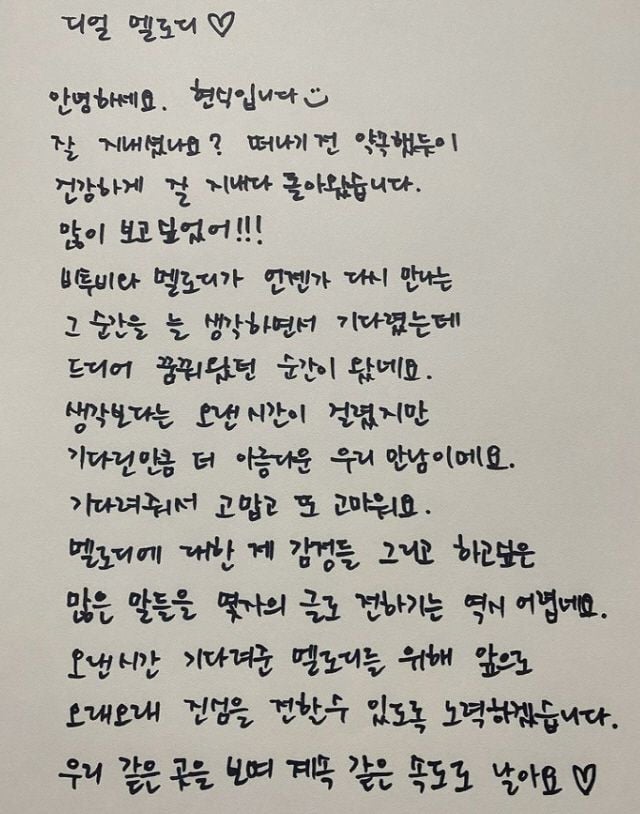 디얼 멜로디♡
안녕하세요. 현식입니다☺
잘 지내셨나요? 떠나기 전 약속했듯이
건강하게 잘 지내다 돌아왔습니다.
많이 보고싶었어!!!
비투비와 멜로디가 언젠가 다시 만나는
그 순간을 늘 생각하면서 기다렸는데
드디어 꿈꿔왔던 순간이 왔네요.
생각보다는 오랜시간이 걸렸지만
기다린만큼 더 아름다운 우리 만남이에요.
기다려줘서 고맙고 또 고마워요.
멜로디에 대한 제 감정들 그리고 하고싶은
많은 말들을 몇자의 글로 전하기는 역시 어렵네요.
오랜시간 기다려준 멜로디를 위해 앞으로
오래오래 진심을 전할수 있도록 노력하겠습니다.
우리 같은 곳을 보며 계속 같은 속도로 날아요♡